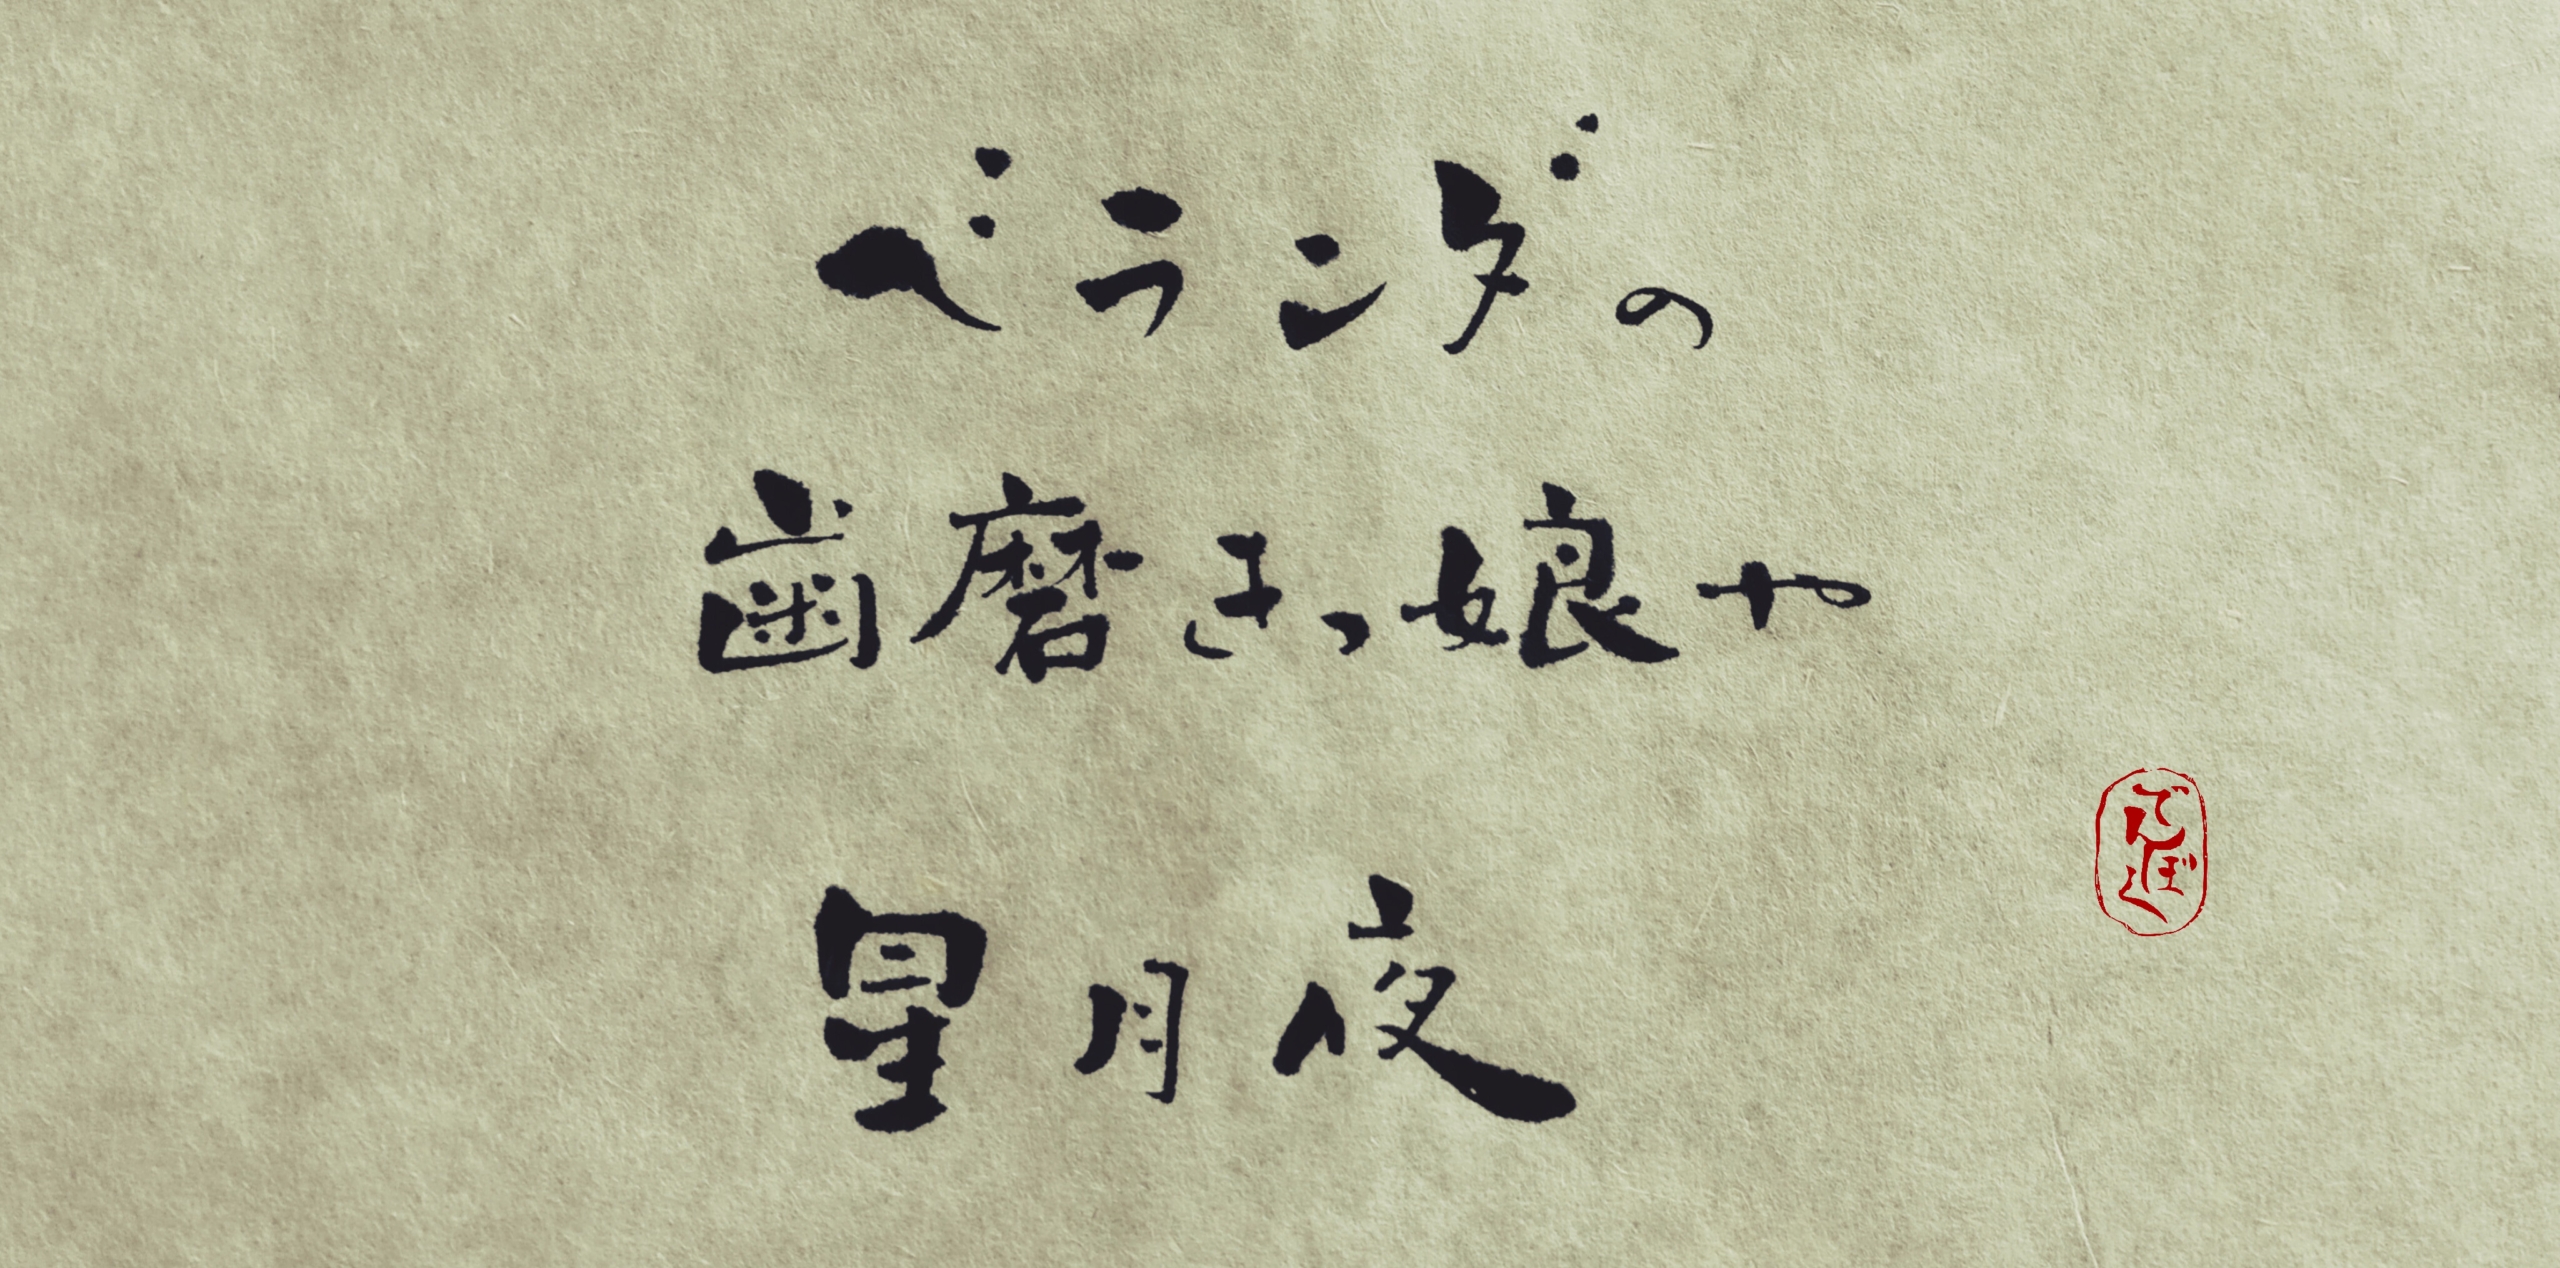 ベランダの
歯磨きっ娘や
星月夜
でんぼ